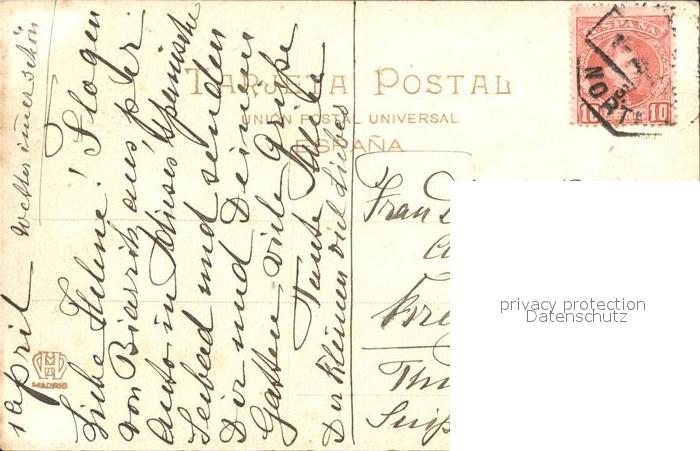 TARJETA POSTAL
UNION POSTAL UNIVERSAL
ESPAÑA
ESPAÑA
10 10
NORTE
MADRID
1 april
Wetter immer schön
Liebe Helene! Flogen
von Biarritz aus per
Auto in dieses spanische
Seebad und senden
Dir und Deinem
Gatten viele Grüße
Tante
Der Kleinen viel Liebes
Frau
privacy protection
Datenschutz